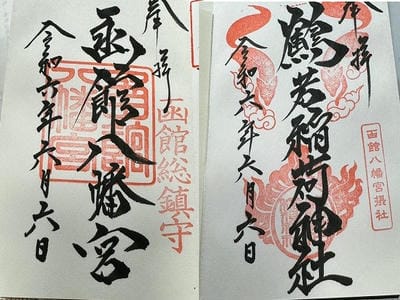 奉拝
函館八幡宮
令和六年六月六日
函館総鎮守
奉拝
鶴若稲荷神社
令和六年六月六日
函館八幡宮摂社